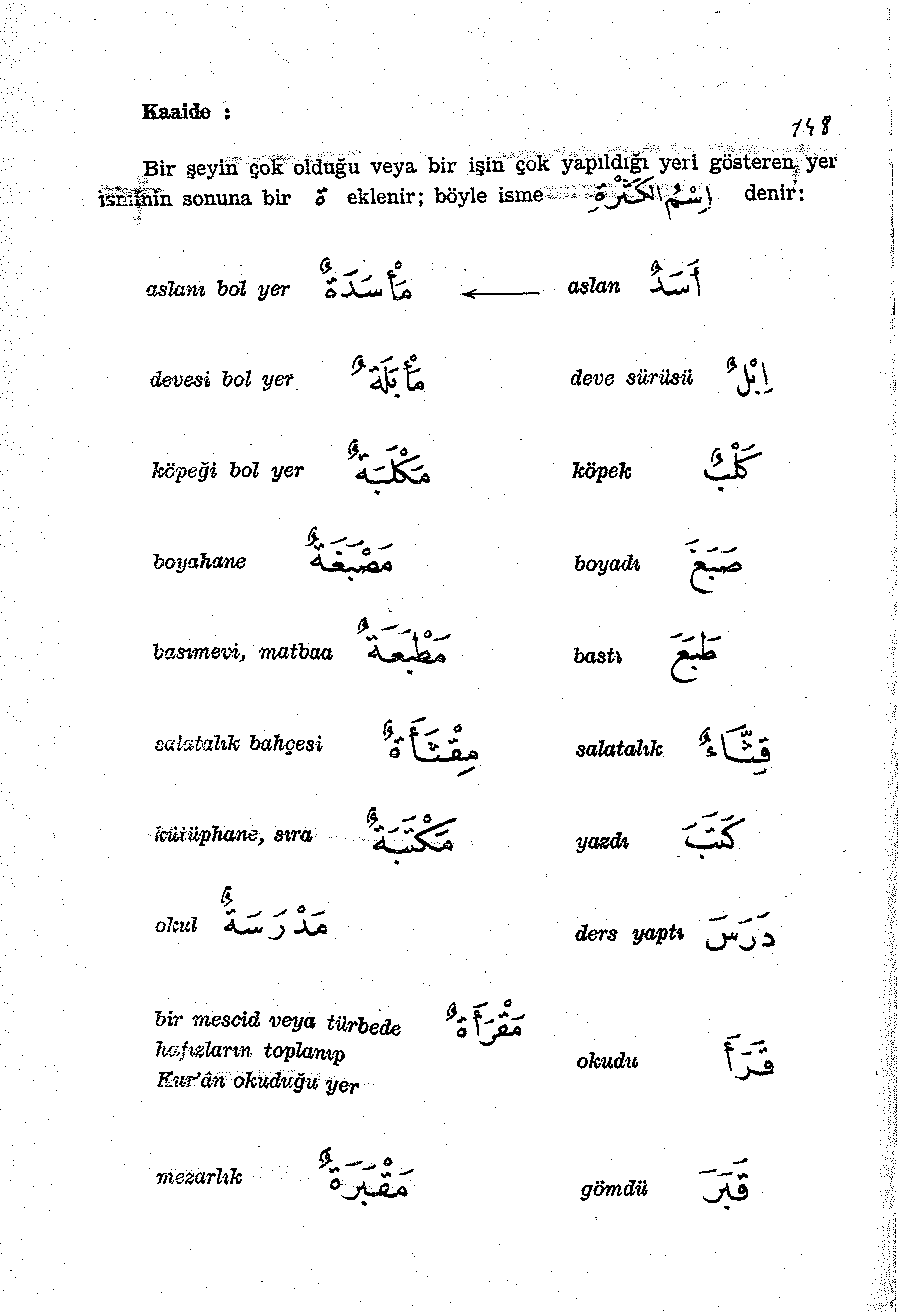 Kaaide :
148
Bir şeyin çok olduğu veya bir işin çok yapıldığı yeri gösteren yer
isminin sonuna bir ة eklenir; böyle isme اِسْمُ الكَثْرَةِ denir:
aslanı bol yer مَأْسَدَةٌ ← aslan أَسَدٌ
devesi bol yer مَأْبَلَةٌ deve sürüsü اِبْلٌ
köpeği bol yer مَكْلَبَةٌ köpek كَلْبٌ
boyahane مَصْبَغَةٌ boyadı صَبَغَ
basımevi, matbaa مَطْبَعَةٌ bastı طَبَعَ
salatalık bahçesi مِقْثَأَةٌ salatalık قِثَّاءٌ
kütüphane, sıra مَكْتَبَةٌ yazdı كَتَبَ
okul مَدْرَسَةٌ ders yaptı دَرَسَ
bir mescid veya türbede مَقْرَأَةٌ
hafızların toplanıp okudu قَرَأَ
Kur'ân okuduğu yer
mezarlık مَقْبَرَةٌ gömdü قَبَرَ